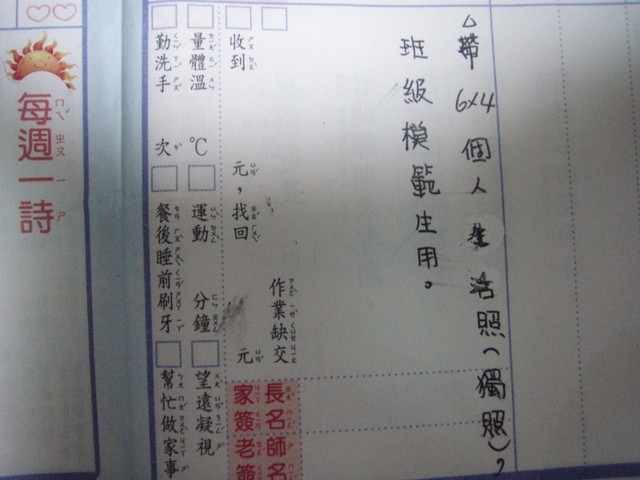 △帶6×4個人生活照(獨照),
班級模範生用。
作業缺交
收到
元,找回
元
量體溫
℃
運動
分鐘
望遠凝視
勤洗手
次
餐後睡前刷牙
幫忙做家事
家長簽名
老師簽名
每週一詩